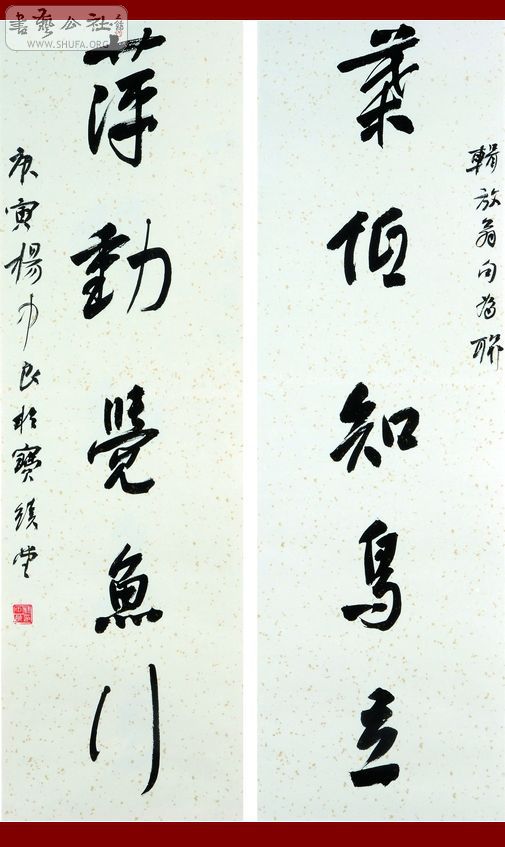 輯放翁句為聯
葉低知鳥立
萍動覺魚行
庚寅楊中良於寶堂
書藝公社
WWW.SHUFA.ORG